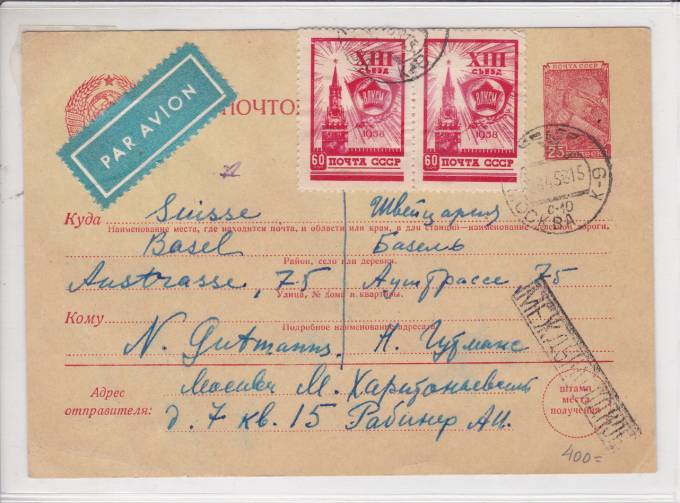 PAR AVION
ПОЧТО
XIII
СЪЕЗД
ВЛКСМ
1958
60 ПОЧТА СССР
XIII
СЪЕЗД
ВЛКСМ
1958
60 ПОЧТА СССР
ПОЧТА СССР
25
МОСКВА
К-9
Куда Suisse Швейцария
Наименование места, где находится почта, и области или края, а для станции—наименование дороги.
Basel Базель
Район, село или деревня.
Austrasse, 75 Аустрассе, 75
Улица, № дома и квартиры.
Кому
Подробное наименование адресата
N. Gutmann А. Гутманс
МЕЖДУНАРОДНОЕ
Адрес
отправителя:
Москва М. Харитоньевский
д. 7 кв. 15 Рабинер
штамп
места
получения
400=